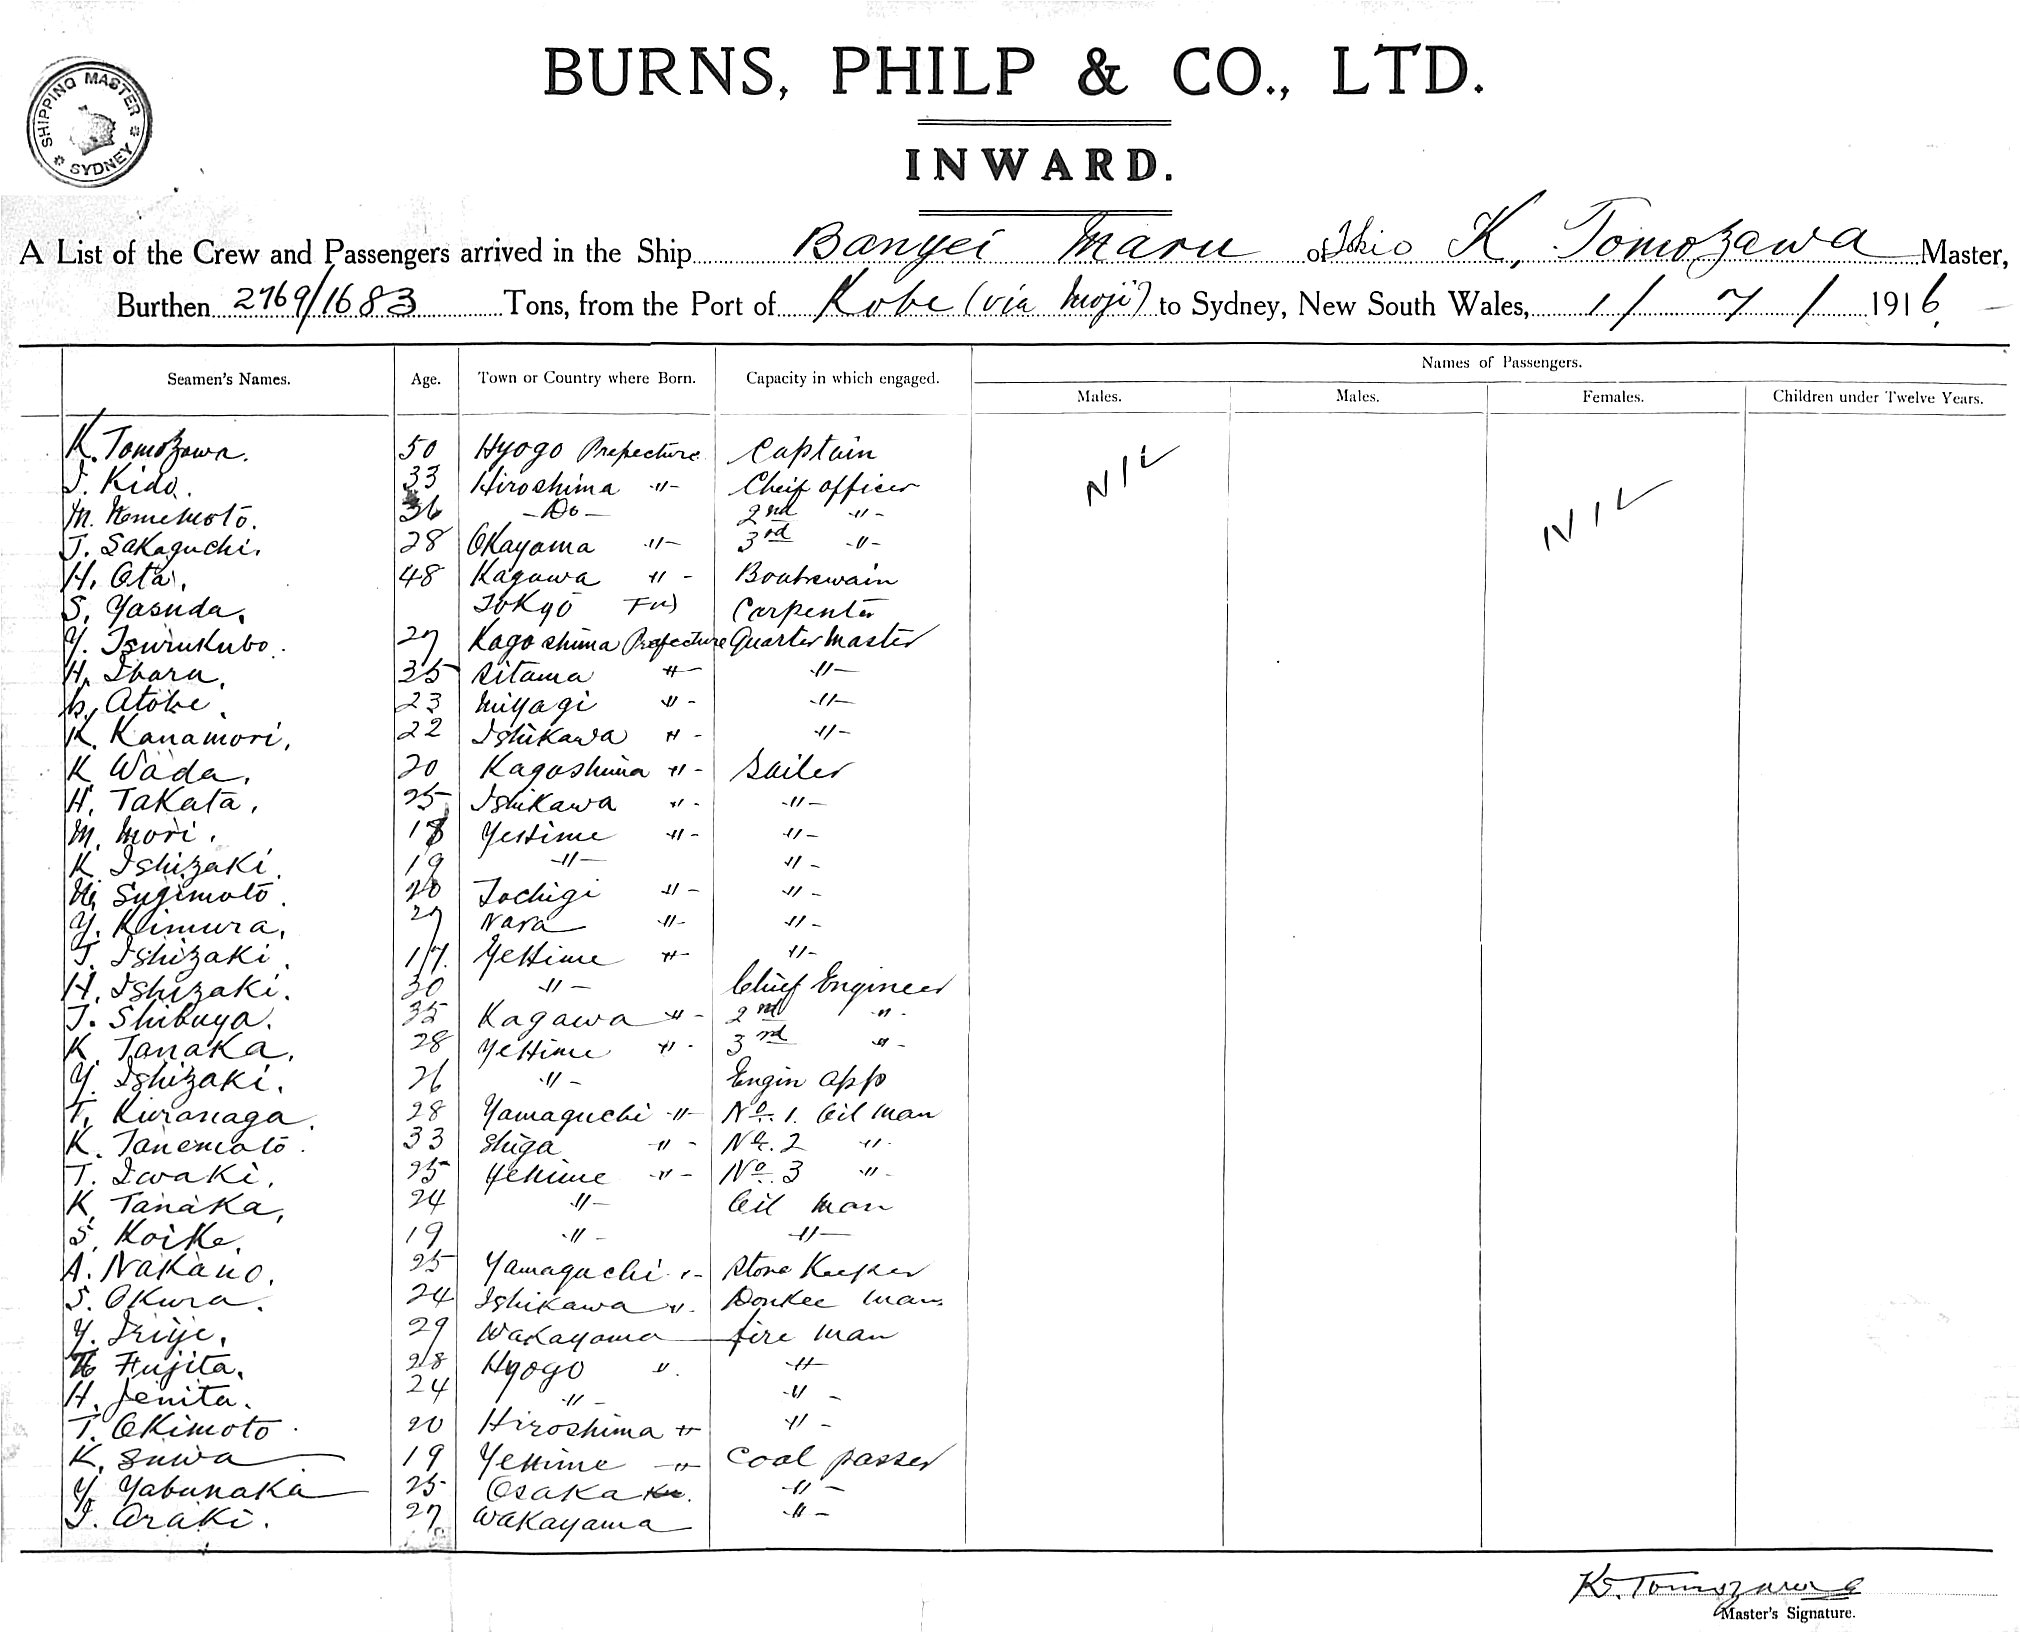 BURNS, PHILP & CO., LTD.
SHIPPING MASTER SYDNEY
INWARD.
A List of the Crew and Passengers arrived in the Ship Banyei Maru of K. Tomozawa Master,
Burthen 2769/1683 Tons, from the Port of Kobe (via Moji) to Sydney, New South Wales, 1/7/1916
Names of Passengers.
Seamen's Names. Age. Town or Country where Born. Capacity in which engaged. Males. Males. Females. Children under Twelve Years.
K. Tomozawa. 50 Hyogo Prefecture Captain NIL NIL
Kido. 33 Hiroshima -"- Cheif officer
M. 36 -Do- 2nd -"-
T. Sakaguchi. 28 Okayama -"- 3rd -"-
H. Ota. 48 Kagawa "- Boatswain
S. Yasuda. Tokyo Carpenter
Y. Tsurukubo. 27 Kagoshima Prefecture Quarter Master
H. Ibara. 35 Sitama "- -"-
Atobe. 23 Miyagi "- -"-
K. Kanamori. 22 Ishikawa "- -"-
K. Wada. 20 Kagoshima "- Sailer
H. Takata. 25 Ishikawa "- -"-
M. Mori. 18 Yehime -"- -"-
K. Ishizaki. 19 -"- "-
Sugimoto. 20 Tochigi "- -"-
Y. Kimura. 27 Nara -"- -"-
T. Ishizaki. 17. Yehime "- "-
H. Ishizaki. 30 -"- Chief Engineer
T. Shibuya. 35 Kagawa "- 2nd "-
K. Tanaka. 28 Yehime "- 3rd "-
Y. Ishizaki. 26 -"- Engin app
T. Kuranaga. 28 Yamaguchi -"- No. 1. Oil man
K. Tanemoto. 33 Shiga "- No. 2 "-
T. Iwaki. 25 Yehime -"- No. 3 -"-
K. Tanaka. 24 -"- Oil man
S. Koike. 19 -"- -"-
A. Nakano. 25 Yamaguchi "- Store Keeper
S. Okura. 24 Ishikawa "- Donkee man
Y. Iriye. 29 Wakayama fire man
Fujita. 28 Hyogo " -"-
H. Jenita. 24 -"- -"-
T. Okimoto. 20 Hiroshima "- -"-
K. Suwa 19 Yehime -"- Coal passer
Y. Yabunaka 25 Osaka -"-
Araki. 27 Wakayama -"-
K. Tomozawa
Master's Signature.